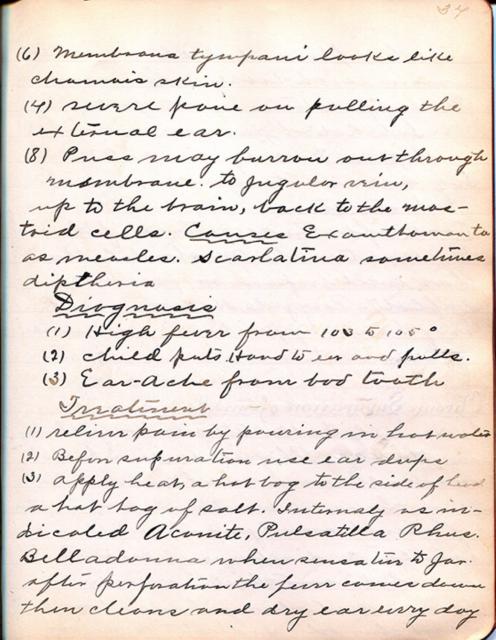 34
(6) Membrana tympani looks like
chamois skin.
(4) severe pane on pulling the
external ear.
(8) Puss may burrow out through
membrane. to Jugular vein,
up to the brain, back to the mas-
toid cells. Causes Exanthomon to
as measles. Scarlatina sometimes
diptheria
Diognosis
(1) High fever from 103 to 105°
(2) child puts Hand to ear and pulls.
(3) Ear-Ache from bod tooth
Treatment
(1) relieve pain by pouring in hot water
(2) Before supuration use ear drops
(3) apply heat, a hot bog to the side of head
a hot bag of salt. Internaly as in-
dicated Aconite, Pulsatilla Rhus.
Belladonna when sensative to Jar.
after perforation the fever comes down
then cleans and dry ear every day